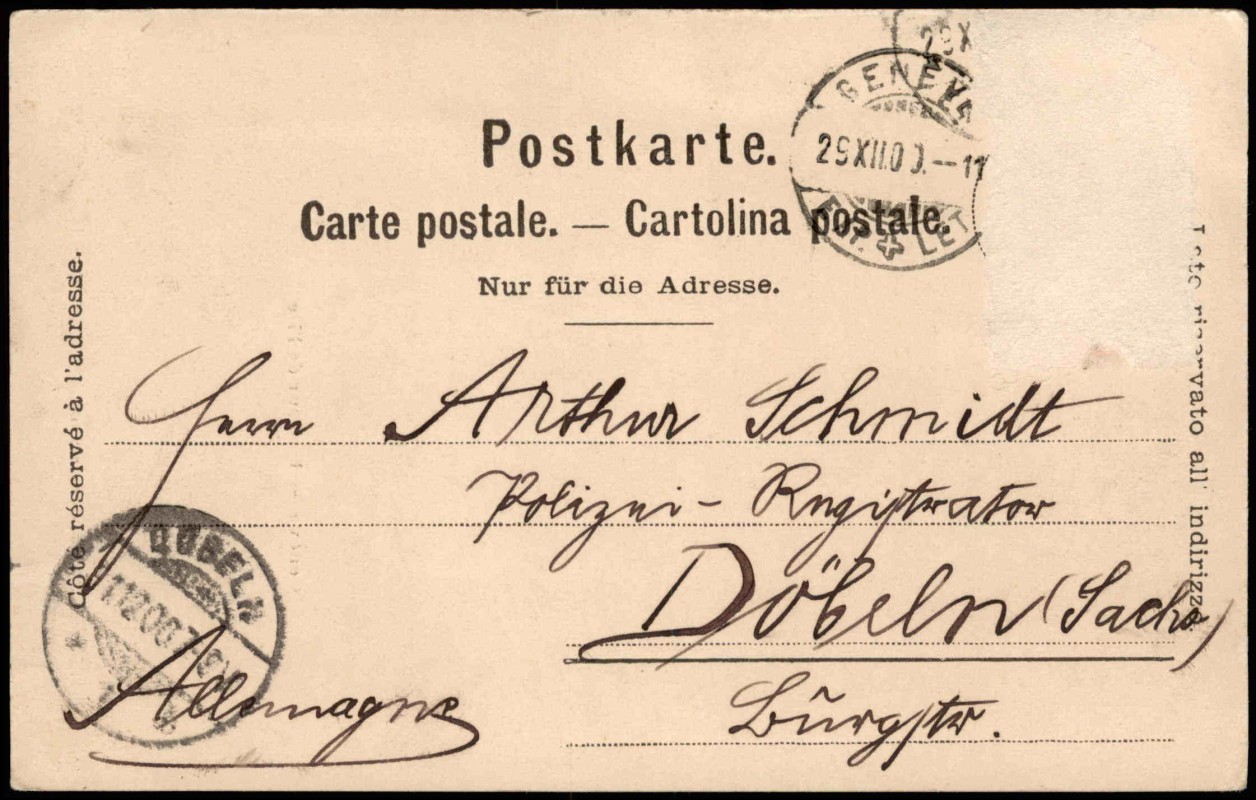 Postkarte.
Carte postale. — Cartolina postale.
Nur für die Adresse.
Côté réservé à l'adresse.
Lato riservato all' indirizzo.
GENÈVE
29 XII.00.—11
EXP. LET
29 X
Herrn Arthur Schmidt
Polizei-Registrator
Döbeln (Sachs)
Burgstr.
Allemagne
DÖBELN